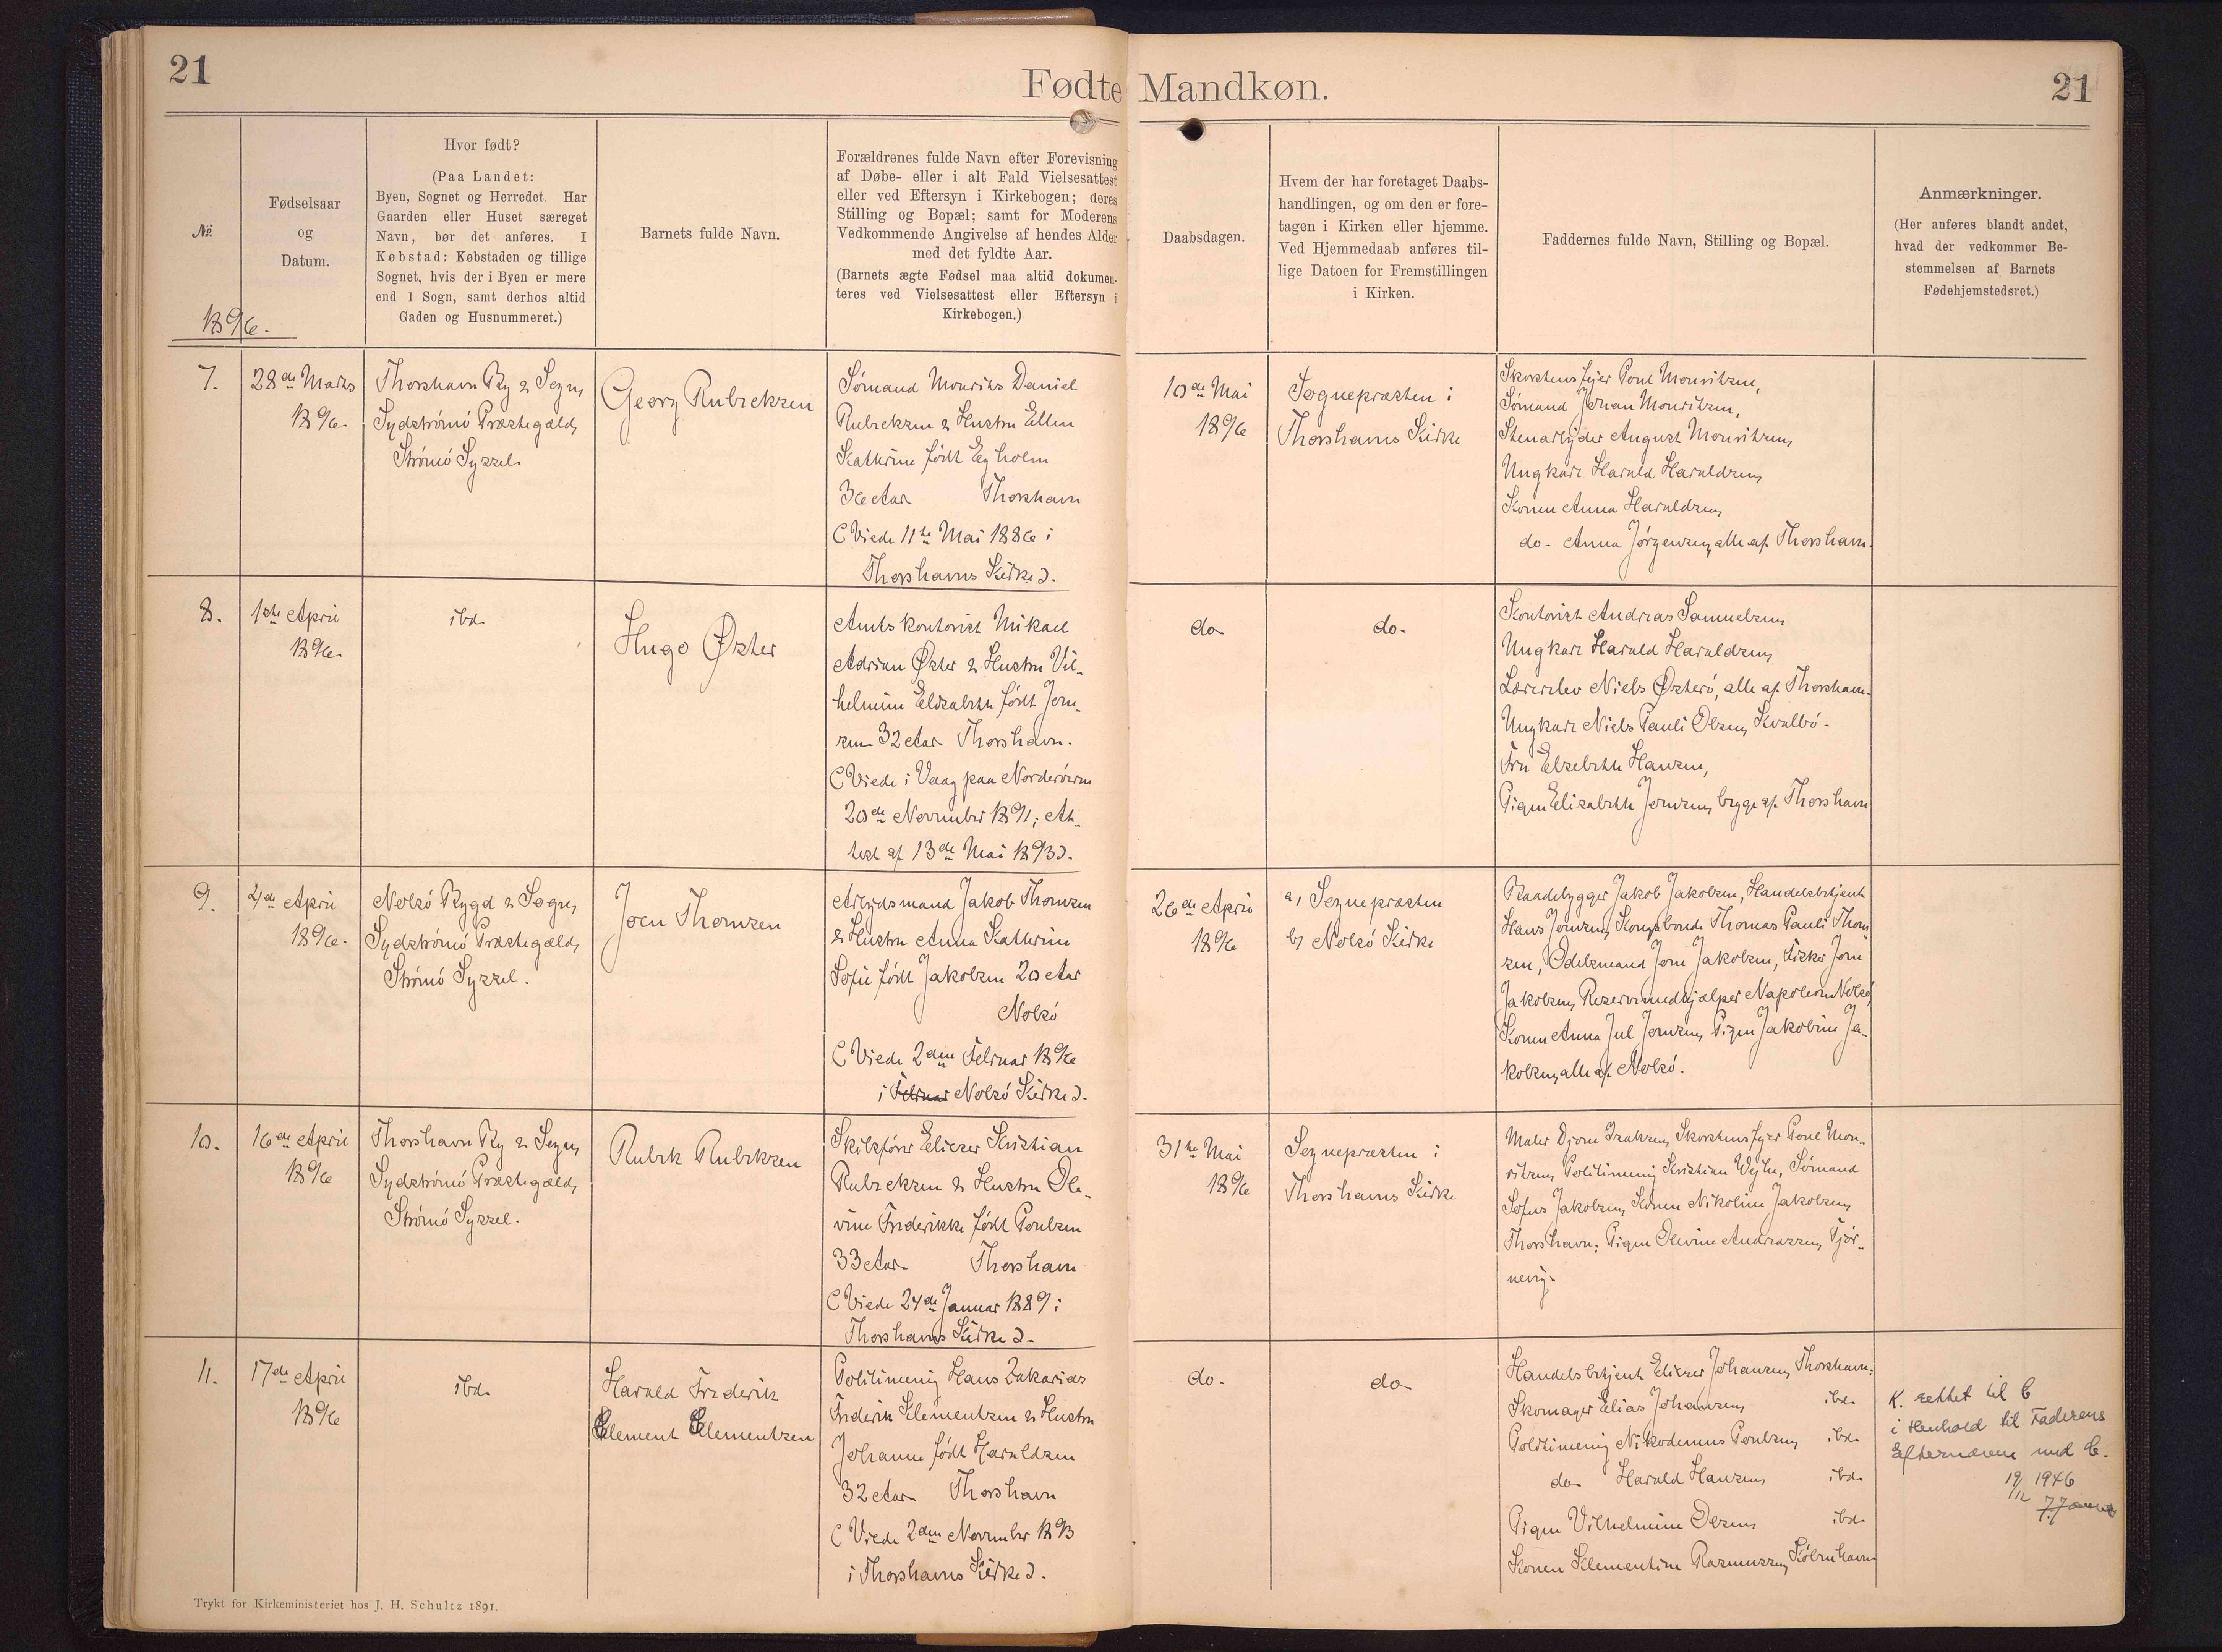 21
Fødte Mandkøn.
21
№.
1896.
Fødselsaar
og
Datum.
Hvor født?
(Paa Landet:
Byen, Sognet og Herredet. Har
Gaarden eller Huset særeget
Navn, bør det anføres. I
Købstad: Købstaden og tillige
Sognet, hvis der i Byen er mere
end 1 Sogn, samt derhos altid
Gaden og Husnummeret.)
Barnets fulde Navn.
Forældrenes fulde Navn efter Forevisning
af Døbe- eller i alt Fald Vielsesattest
eller ved Eftersyn i Kirkebogen; deres
Stilling og Bopæl; samt for Moderens
Vedkommende Angivelse af hendes Alder
med det fyldte Aar.
(Barnets ægte Fødsel maa altid dokumen-
teres ved Vielsesattest eller Eftersyn i
Kirkebogen.)
Daabsdagen.
Hvem der har foretaget Daabs-
handlingen, og om den er fore-
tagen i Kirken eller hjemme.
Ved Hjemmedaab anføres til-
lige Datoen for Fremstillingen
i Kirken.
Faddernes fulde Navn, Stilling og Bopæl.
Anmærkninger.
(Her anføres blandt andet,
hvad der vedkommer Be-
stemmelsen af Barnets
Fødehjemstedsret.)
7.
28de Marts
1896.
Thorshavn By & Sogn,
Sydstrømø Præstegæld,
Strømø Syssel.
Georg Rubeksen
Sømand Mourits Daniel
Rubeksen & Hustru Ellen
Kathrine født Egholm
36 Aar Thorshavn
(Viede 11te Mai 1886 i
Thorshavns Kirke).
10de Mai
1896
Sognepræsten i
Thorshavns Kirke
Skorstensfejer Poul Mouritsen,
Sømand Johan Mouritsen,
Stenarbejder August Mouritsen,
Ungkarl Harald Haraldsen,
Konen Anna Haraldsen,
do. Anna Jørgensen, alle af Thorshavn.
8.
1ste April
1896.
ibd.
Hugo Øster
Amtskontorist Mikael
Adrian Øster & Hustru Vil-
helmine Elisabeth født Joen-
sen 32 Aar Thorshavn.
(Viede i Vaag paa Norderøerne
20de November 1891; At-
test af 13de Mai 1893).
do.
do.
Kontorist Andreas Samuelsen,
Ungkarl Harald Haraldsen,
Lærerelev Niels Østerø, alle af Thorshavn.
Ungkarl Niels Pauli Olsen, Kvalbø.
Fru Elsebeth Hansen,
Pigen Elisabeth Joensen, begge af Thorshavn
9.
4de April
1896.
Nolsø Bygd & Sogn,
Sydstrømø Præstegæld,
Strømø Syssel.
Joen Thomsen
Arbejdsmand Jakob Thomsen
& Hustru Anna Kathrine
Sofie født Jakobsen 20 Aar
Nolsø
(Viede 2den Februar 1896
i Februar Nolsø Kirke).
26de April
1896
a, Sognepræsten
b, Nolsø Kirke
Baadebygger Jakob Jakobsen, Handelsbetjent
Hans Joensen, Kongsbonde Thomas Pauli Thom-
sen, Odelsmand Joen Jakobsen, Fisker Joen
Jakobsen, Reservemedhjælper Napoleon Nolsø,
Konen Anna Jul Joensen, Pigen Jakobine Ja-
kobsen, alle af Nolsø.
10.
16de April
1896
Thorshavn By & Sogn,
Sydstrømø Præstegæld,
Strømø Syssel.
Rubek Rubeksen
Skibsfører Eliezer Kristian
Rubeksen & Hustru Ole-
vine Frederikke født Poulsen
33 Aar. Thorshavn
(Viede 24de Januar 1889 i
Thorshavns Kirke).
31te Mai
1896
Sognepræsten i
Thorshavns Kirke
Maler Djone Isaksen, Skorstensfejer Poul Mou-
ritsen, Politimenig Kristian Weyhe, Sømand
Sofus Jakobsen, Konen Nikoline Jakobsen,
Thorshavn; Pigen Olevine Andreassen, Tjør-
nevig.
11.
17de April
1896
ibd.
Harald Frederik
Clement Clementsen
Politimenig Hans Zakarias
Frederik Klementsen & Hustru
Johanne født Haraldsen
32 Aar Thorshavn
(Viede 2den November 1893
i Thorshavns Kirke).
do.
do.
Handelsbetjent Eliezer Johansen, Thorshavn;
Skomager Elias Johansen, ibd.
Politimenig Nikodemus Poulsen, ibd.
do. Harald Hansen, ibd.
Pigen Vilhelmine Olsen, ibd.
Konen Klementine Rasmussen, Kølnhavn
K. rettet til C
i Henhold til Faderens
Efternavn med C.
19/12 1946
Trykt for Kirkeministeriet hos J. H. Schultz 1891.